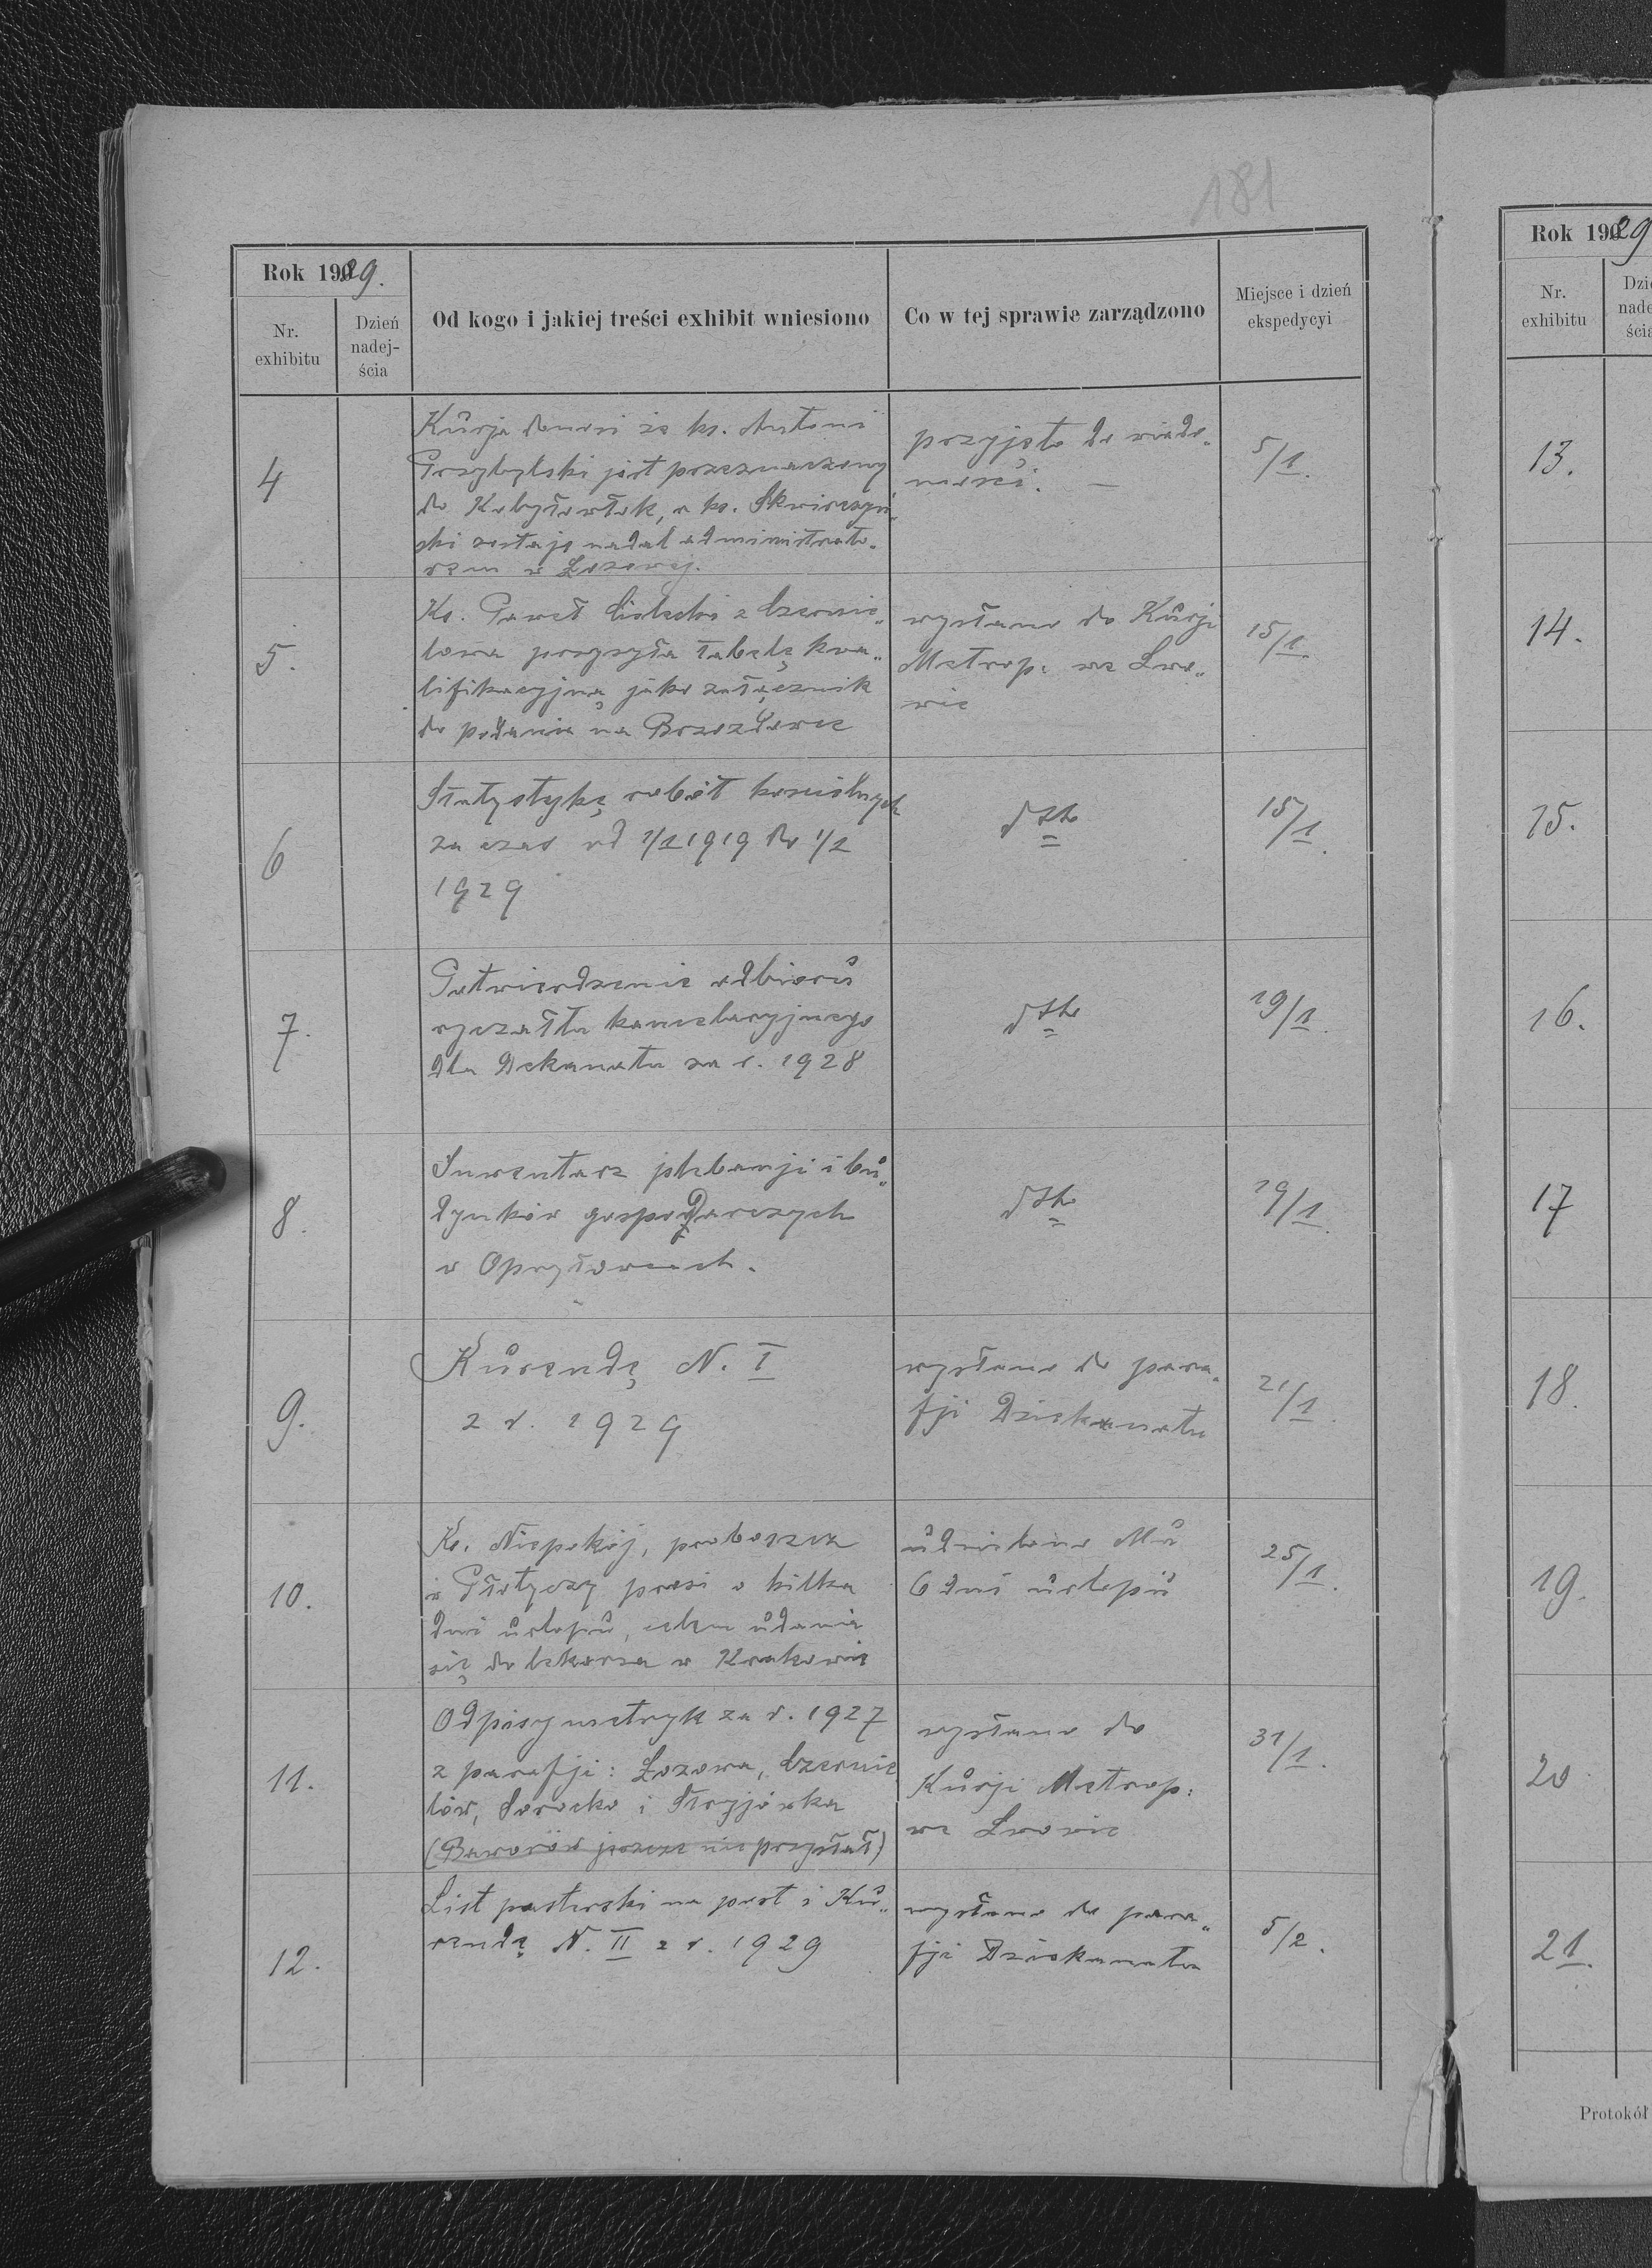 181
Rok 1929.
Nr. exhibitu
Dzień nadejścia
Od kogo i jakiej treści exhibit wniesiono
Co w tej sprawie zarządzono
Miejsce i dzień ekspedycyi
4
Kurja donosi że ks. Antoni
Przybylski jest przeznaczony
do Kobyłowłok, a ks. Skwirczyń„
ski zostaje nadal administrato„
rem w Łozowej.
przyjęto do wiado„
mości. —
5/1.
5.
Ks. Paweł z Czernie„
lowa przysyła tabelę kwa„
lifikacyjną jako załącznik
do podania na Brzozdowce
wysłano do Kurji
Metrop. we Lwo„
wie
15/1.
6
Statystykę robót kościelnych
za czas od 1/1 1919 do 1/1
1929
dtto
15/1.
7.
Potwierdzenie odbioru
ryczałtu kancelaryjnego
dla Dekanatu za r. 1928
dtto
19/1.
8.
Inwentarz plebanji i bu„
dynków gospodarczych
w Opryłowcach.
dtto
19/1.
9.
Kurendę N. I
z r. 1929
wysłano do para„
fji Dziekanatu
21/1.
10.
Ks. Niepokój, proboszcz
w Płotyczy prosi o kilka
dni urlopu, celem udania
się do lekarza w Krakowie
udzielono Mu
6 dni urlopu
25/1.
11.
Odpisy metryk za r. 1927
z parafji: Łozowa, Czernie
lów, Sorocko i Stryjówka
(Baworów jeszcze nie przysłał)
wysłano do
Kurji Metrop.
we Lwowie
31/1.
12.
List pasterski na post i Ku„
rendę N. II z r. 1929
wysłano do para„
fji Dziekanatu
5/2.
Rok 1929
Nr. exhibitu
13.
14.
15.
16.
17
18.
19.
20
21.
Protokół